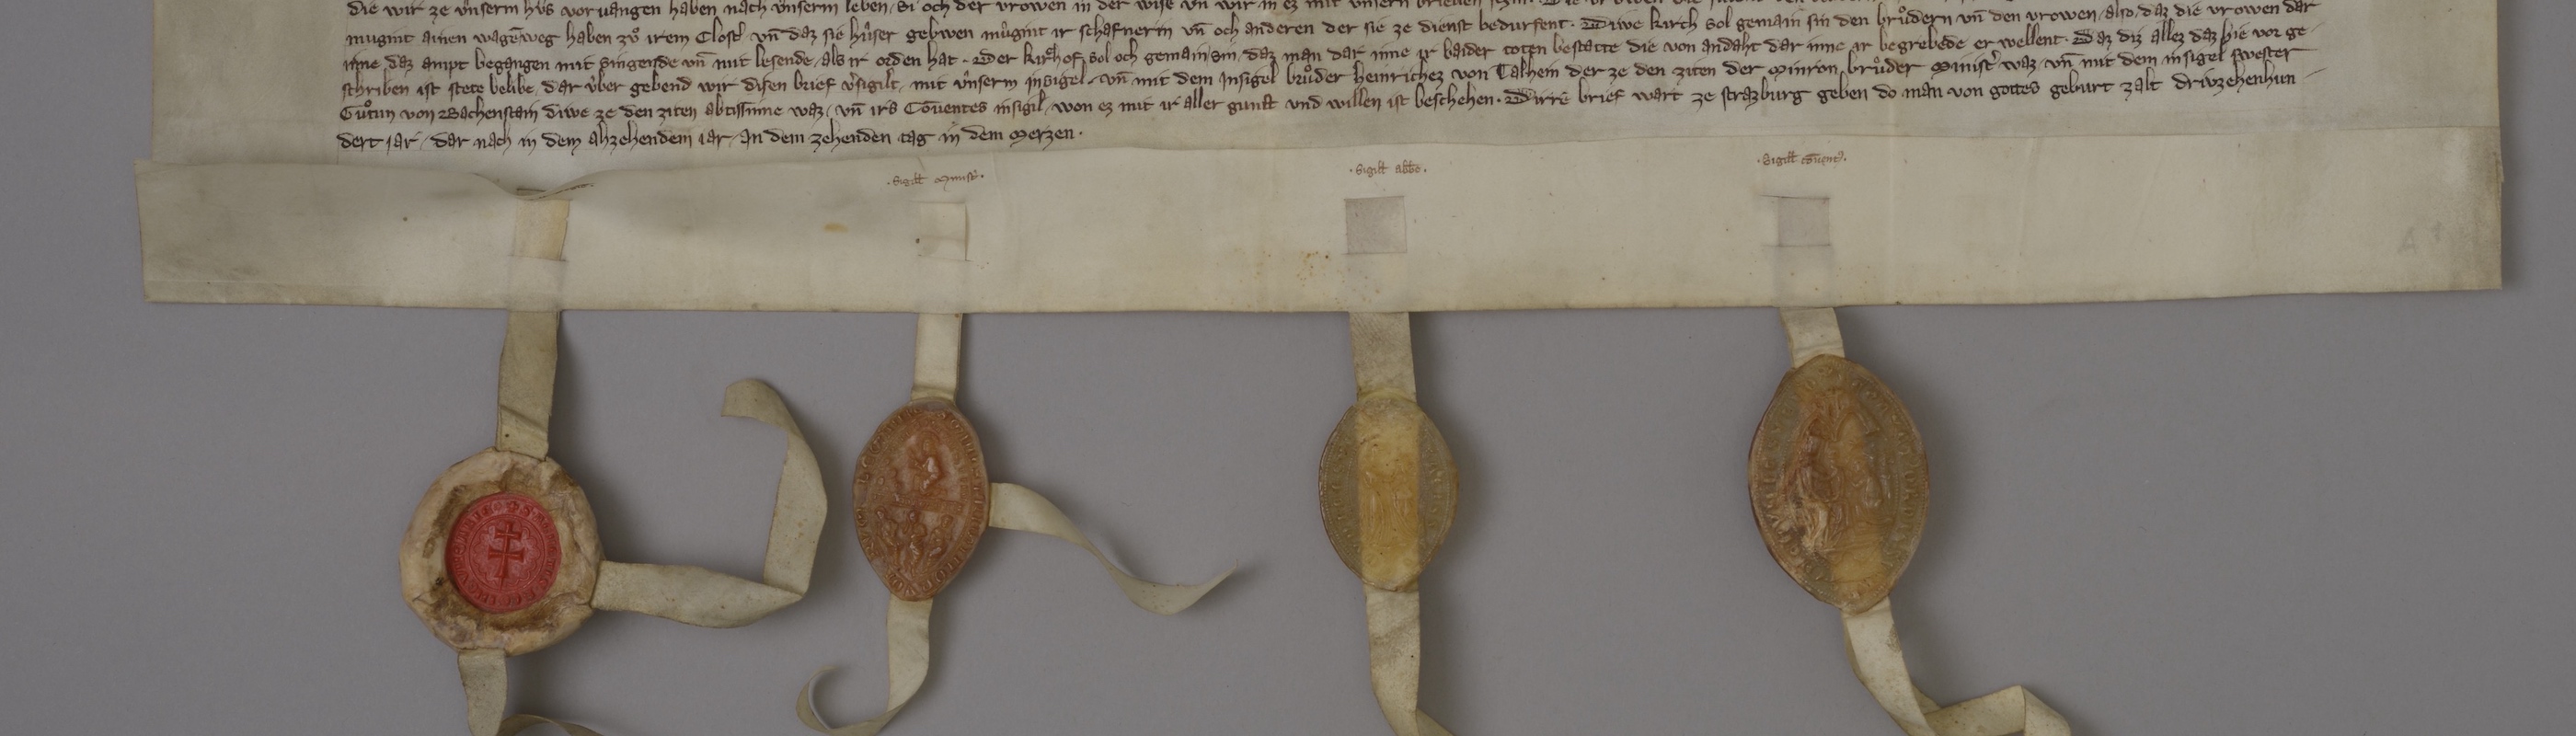 die wir ze vnserm hvs vor uangen haben nach vnserm leben, si och der vrowen in der wise vn̄ wir in ez mit vnsern brieuen
mugint ainen wagē weg haben zvͦ irem Clost᷑ vn̄ daz sie hv́ser gebwen mv́gint ir schafnerin vn̄ och anderen der sie ze dienst bedurfent · Diwe kirch sol gemain sin den brvͦdern vn̄ den vrowen, also, daz die vrowen dar
inne daz ampt begangen mit singende vn̄ mit lesende, als ir orden hat · Der kirchof sol och gemain sin, daz man dar inne ir baider toten bestatte die von andaht dar inne ir begrebede erwellent · Daz diz allez daz hie vor ge-
schriben ist stete belibe, dar v́ber gebend wir disen brief v᷑sigilt, mit v́nserm insigel, vn̄ mit dem Insigel brvͦder heinrichez von Talhein der ze den ziten der Minron brvͦder Minist᷑ waz, vn̄ mit dem insigel swester
Gvͦtun von Bachenstain diwe ze den ziten abtissinne waz, vn̄ irs Cōuentes insigil, won ez mit ir aller gunst vnd willen ist beschehen · Dirre brief wart ze strazburg geben do man von gottes geburt zalt drivzehenhun-
dert jar, dar nach in dem ahzehendem iar, an dem zehenden tag in dem Merzen ·
· Sigill̄ Minist᷑ · · Sigill̄ abb̄e · · Sigill̄ cōuent᷑ ·